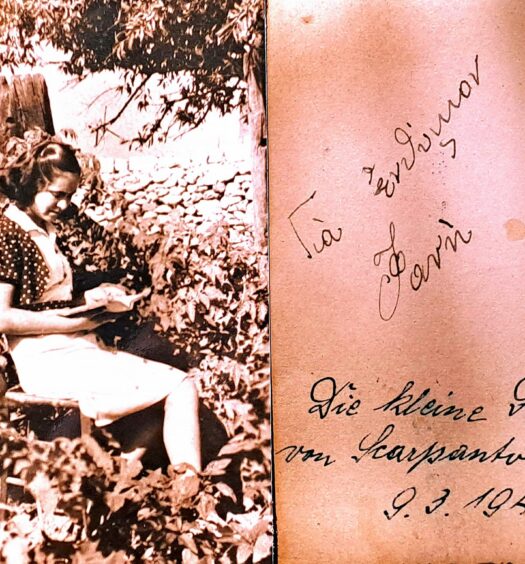 Γιά ἐνθύμιον
Φανή
Die kleine
von Scarpanto
9. 3. 194